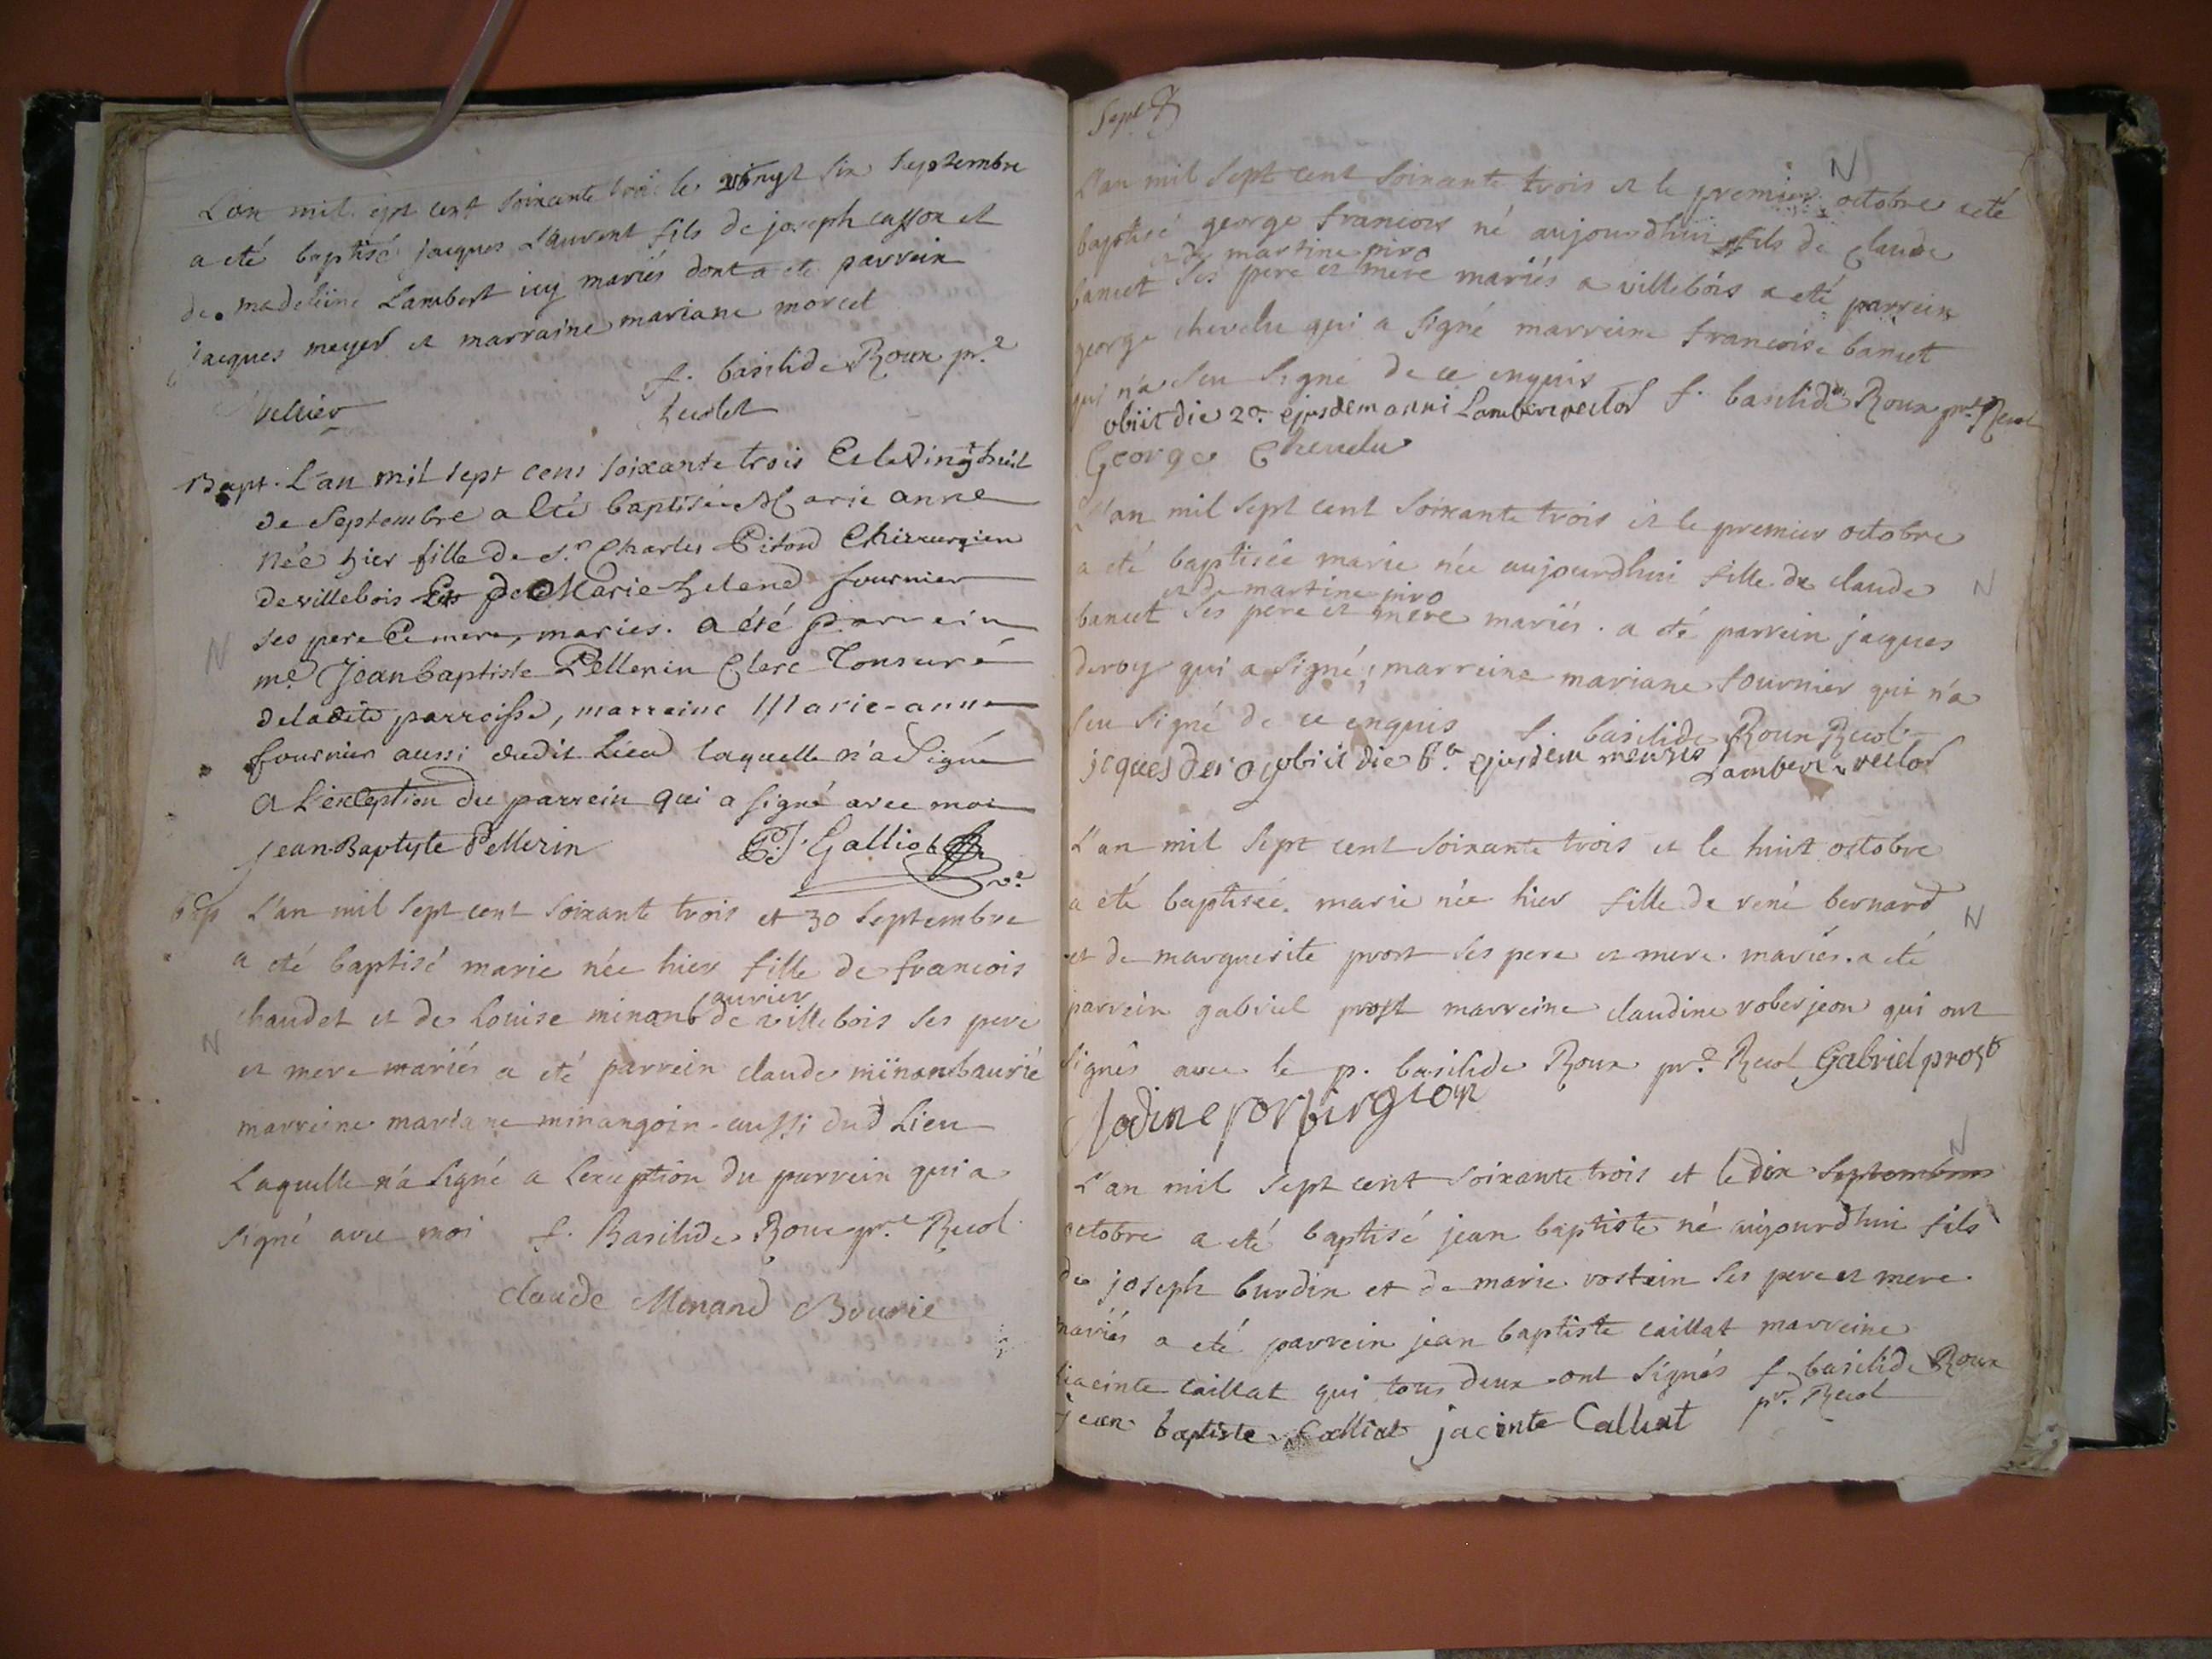 L'an mil sept cent soixante trois le vingt six septembre
a eté baptisé jacques Laurent fils de joseph casson et
de madeleine Lambert icy mariés dont a ete parrein
jacques meyer et marraine mariane morcel
f. basilide Roux pr.e
Recolet
Bapt. L'an mil sept cens soixante trois Et le Vingt huit
de Septembre a Eté baptisée Marie anne
Née hier fille de S.r Charles Pitord Chirurgien
de villebois Et de Marie helene fournier
ses pere Et mere, maries. a été parrein
m.e Jean baptiste Pellerin Clerc Tonsuré
de la dite parroisse, marreine Marie-anne
fournier aussi dudit Lieu laquelle n'a Signé
a L'exception du parrein qui a signé avec moi
jean Baptyste Pellerin P.J. Galliot v.e
bap L'an mil sept cent soixante trois et 30 septembre
a eté baptisé marie née hier fille de francois
chaudet et de louise minand baurier de villebois ses pere
et mere mariés a eté parrein claude minan baurié
marreine mariane minangoin aussi dud Lieu
Laquelle n'a signé a lexception du parrein qui a
signé avec moi f. Basilide Roux pr.e Recol
claude Menand Bourié
Sept
L'an mil sept cent soixante trois et le premier octobre a eté
N
baptisé george francois né aujourdhui fils de claude
et de martine piro
bancet ses pere et mere mariés a villebois a eté parrein
george chevelu qui a signé marreine francoise bancet
qui n'a seu signé de ce enquis f. basilide Roux pr.e Recol
obiit die 2.a ejusdem anni Lambert rector
George Chevelu
L'an mil sept cent soixante trois et le premier octobre
a eté baptisée marie née aujourdhui fille de claude
N
et de martine piro
bancet ses pere et mere mariés. a eté parrein jacques
deroy qui a signé, marreine mariane fournier qui n'a
seu signé de ce enquis f. basilide Roux Recol
jcques deroy obiit die 6.a ejusdem mensis Lambert rector
L'an mil sept cent soixante trois et le huit octobre
a eté baptisée. marie née hier fille de rené bernard
N
et de marguerite prost ses pere et mere. mariés. a eté
parrein gabriel prost marreine claudine roberjeon qui ont
signés avec le p. basilide Roux pr.e Recol Gabriel prost
N
L'an mil sept cent soixante trois et le dix septembre
octobre a eté baptisé jean baptiste né aujourdhui fils
de joseph burdin et de marie rostein ses pere et mere
mariés a eté parrein jean baptiste caillat marreine
hiacinte caillat qui tous deux ont signés f. basilide Roux
pr. Recol
jean baptiste Calliat jacinte Calliat